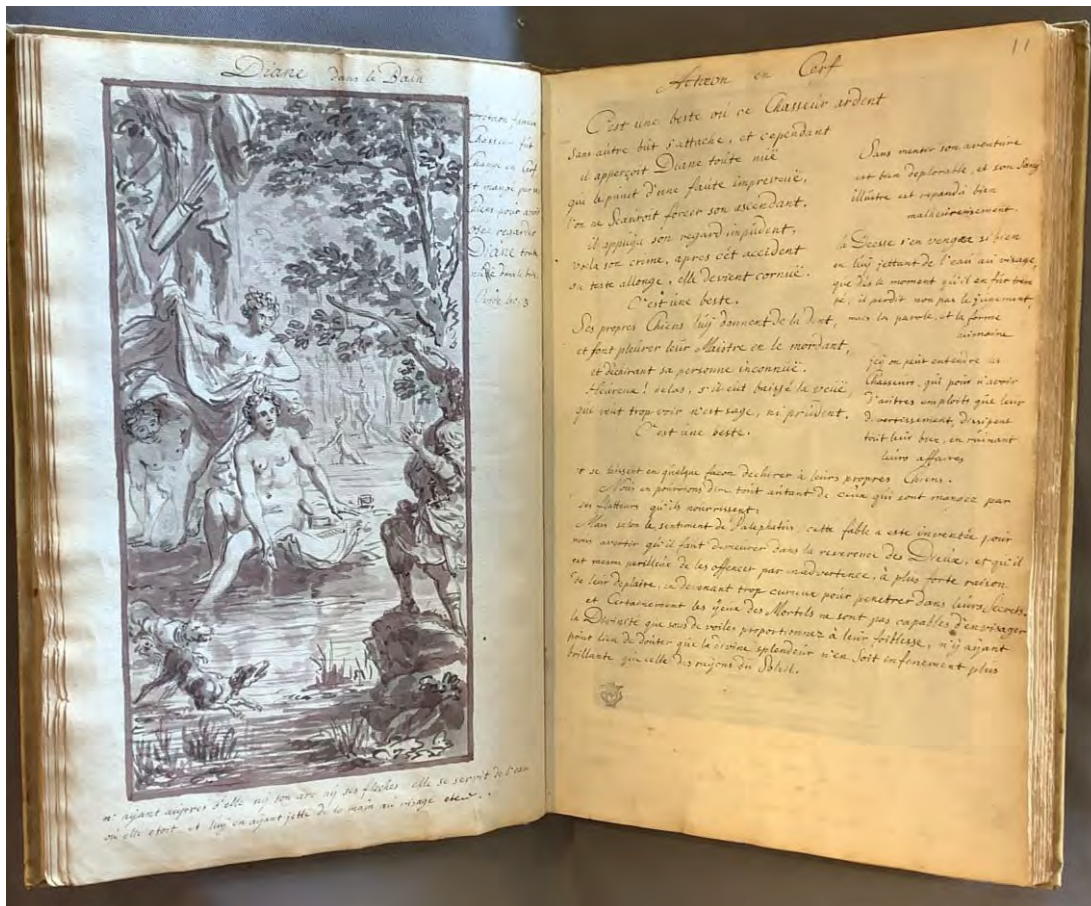 Diane dans le Bain
fameux
Chasseur fut
Changé en Cerf
et mangé par ses
Chiens pour avoir
osé regarder
Diane toute
nuë dans le bain.
Ovide
n'ayant auprès d'elle ny son arc ny ses fleches elle se servit de l'eau
où elle etoit et luy en ayant jetté de la main au visage
11
Actæon en Cerf
C'est une beste où ce Chasseur ardent
Sans autre but s'attache, et cependant
il apperçoit Diane toute nuë
que le punit d'une faute impreveuë,
l'on ne Scauroit forcer son ascendant.
il appuya son regard impudent,
voila son crime, apres cét accident
sa teste allonge, elle devient cornuë.
C'est une beste.
Ses propres Chiens luy donnent de la dent,
et font pleurer leur Maistre en le mordant,
et dechirant sa personne inconnuë.
Heureux! helas, s'il eut baissé la veuë,
qui veut trop voir n'est sage, ni prudent.
C'est une beste.
Sans mentir son aventure
est bien deplorable, et son Sang
illustre est repandu bien
malheureusement.
la Deesse s'en vengea si bien
en luy jettant de l'eau au visage,
que dès le moment qu'il en fut trem
pé, il perdit non pas le jugement,
mais la parole, et la forme
humaine
icy on peut entendre les
Chasseurs, qui pour n'avoir
d'autres emploits que leur
divertissement, dissipent
tout leur bien, en ruinant
leurs affaires
et se laissent en quelque façon dechirer à leurs propres Chiens.
Nous en pourrions dire tout autant de ceux qui sont mangez par
les flatteurs qu'ils nourrissent.
Mais selon le sentiment de Palephatus, cette fable a este inventée pour
nous avertir qu'il faut demeurer dans la reverence des Dieux, et qu'il
est mesme perilleux de les offencer par inadvertence, à plus forte raison
de leur deplaire, en devenant trop curieux pour penetrer dans leurs Secrets.
et Certainement les yeux des Mortels ne sont pas capables d'envisager
la Divinité que sous de voiles proportionnez à leur foiblesse, n'y ayant
point lieu de douter que la divine splendeur n'en Soit infiniement plus
brillante que celle des rayons du Soleil.